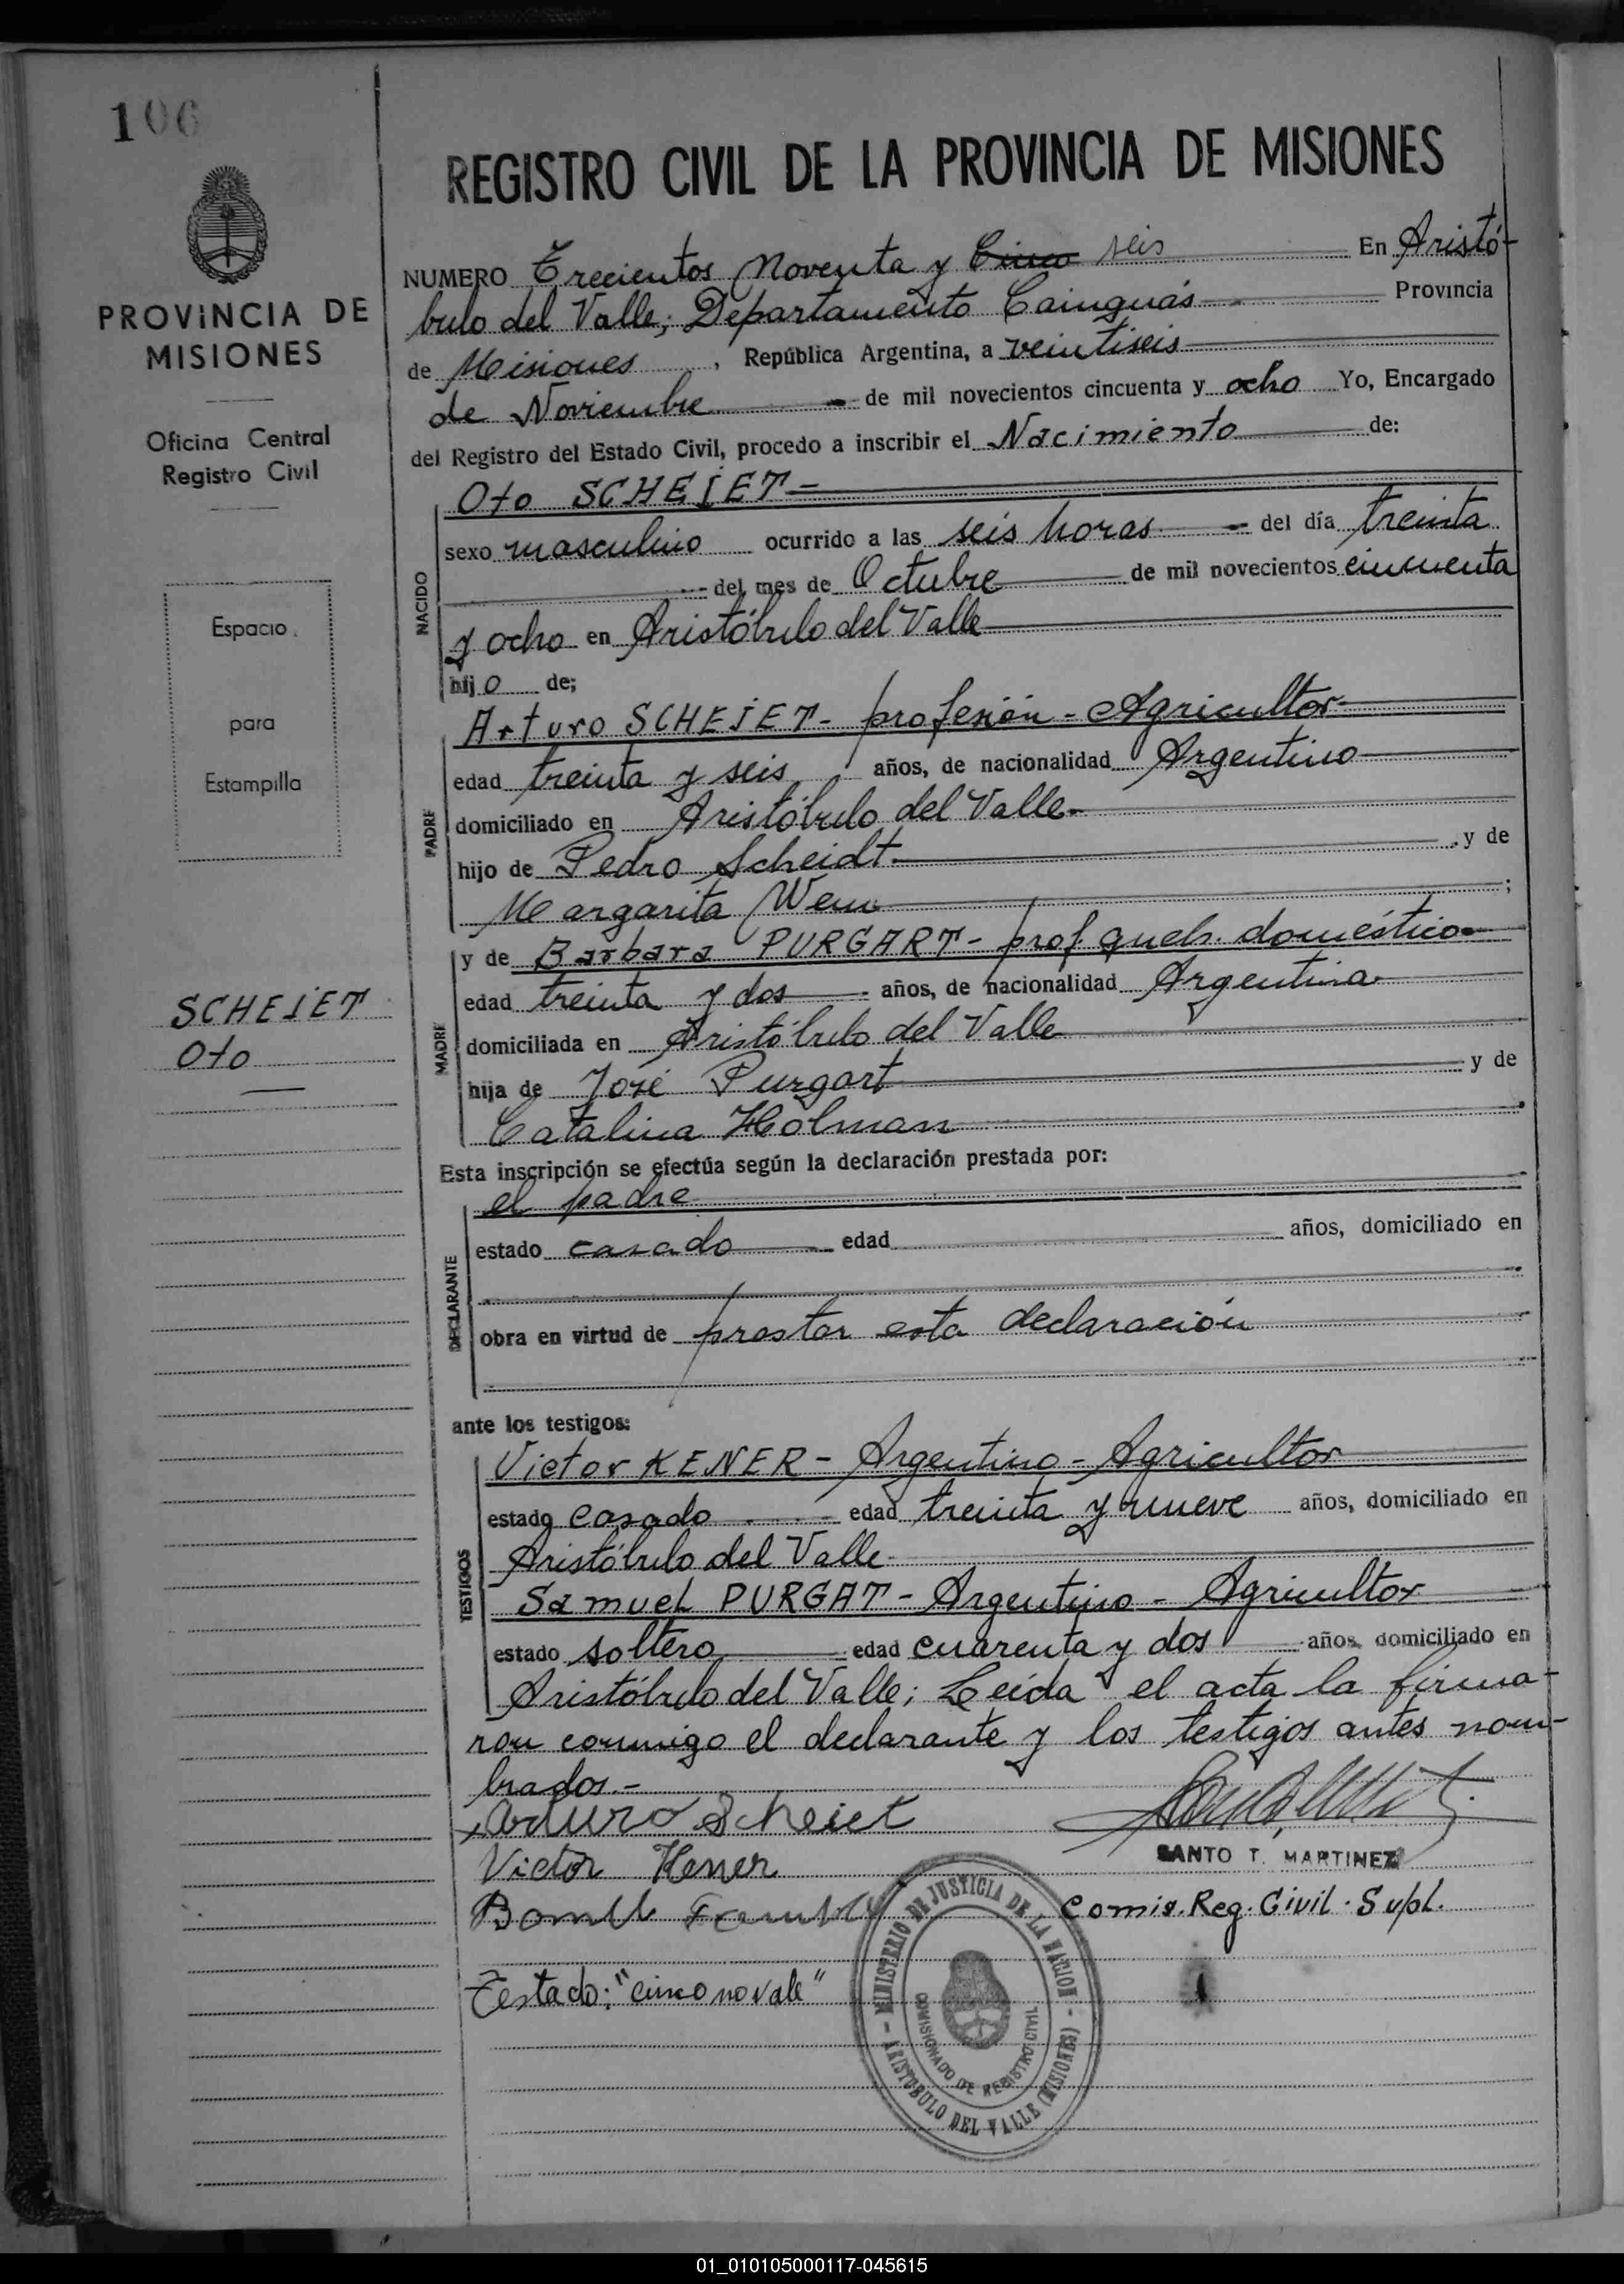 106
PROVINCIA DE
MISIONES
Oficina Central
Registro Civil
Espacio
para
Estampilla
SCHEIET
Oto
REGISTRO CIVIL DE LA PROVINCIA DE MISIONES
NUMERO Trecientos Noventa y Cinco seis En Aristó-
bulo del Valle; Departamento Cainguás Provincia
de Misiones, República Argentina, a veintiseis
de Noviembre de mil novecientos cincuenta y ocho Yo, Encargado
del Registro del Estado Civil, procedo a inscribir el Nacimiento de:
NACIDO
Oto SCHEIET=
sexo masculino ocurrido a las seis horas del día treinta
del mes de Octubre de mil novecientos cincuenta
y ocho en Aristóbulo del Valle
hijo de;
PADRE
Arturo SCHEIET- profesión - Agricultor-
edad treinta y seis años, de nacionalidad Argentino
domiciliado en Aristóbulo del Valle-
hijo de Pedro Scheidt y de
Margarita ;
MADRE
y de Barbara PURGART- prof. queh. doméstico-
edad treinta y dos años, de nacionalidad Argentina
domiciliada en Aristóbulo del Valle
hija de José Purgart y de
Catalina Holman
Esta inscripción se efectúa según la declaración prestada por:
DECLARANTE
el padre
estado casado edad años, domiciliado en
obra en virtud de prestar esta declaración
ante los testigos:
TESTIGOS
Victor KENER - Argentino - Agricultor
estado casado edad treinta y nueve años, domiciliado en
Aristóbulo del Valle
Samuel PURGAT - Argentino - Agricultor
estado soltero edad cuarenta y dos años, domiciliado en
Aristóbulo del Valle; Leida el acta la firma-
ron conmigo el declarante y los testigos antes nom-
brados.-
Arturo Scheiet
Victor Kener
SANTO T. MARTINEZ
Comis. Reg. Civil. Supl.
Testado: "cinco no vale"
MINISTERIO DE JUSTICIA DE LA NACION - ARISTOBULO DEL VALLE (MISIONES) -
COMISIONADO DE REGISTRO CIVIL
01_010105000117-045615